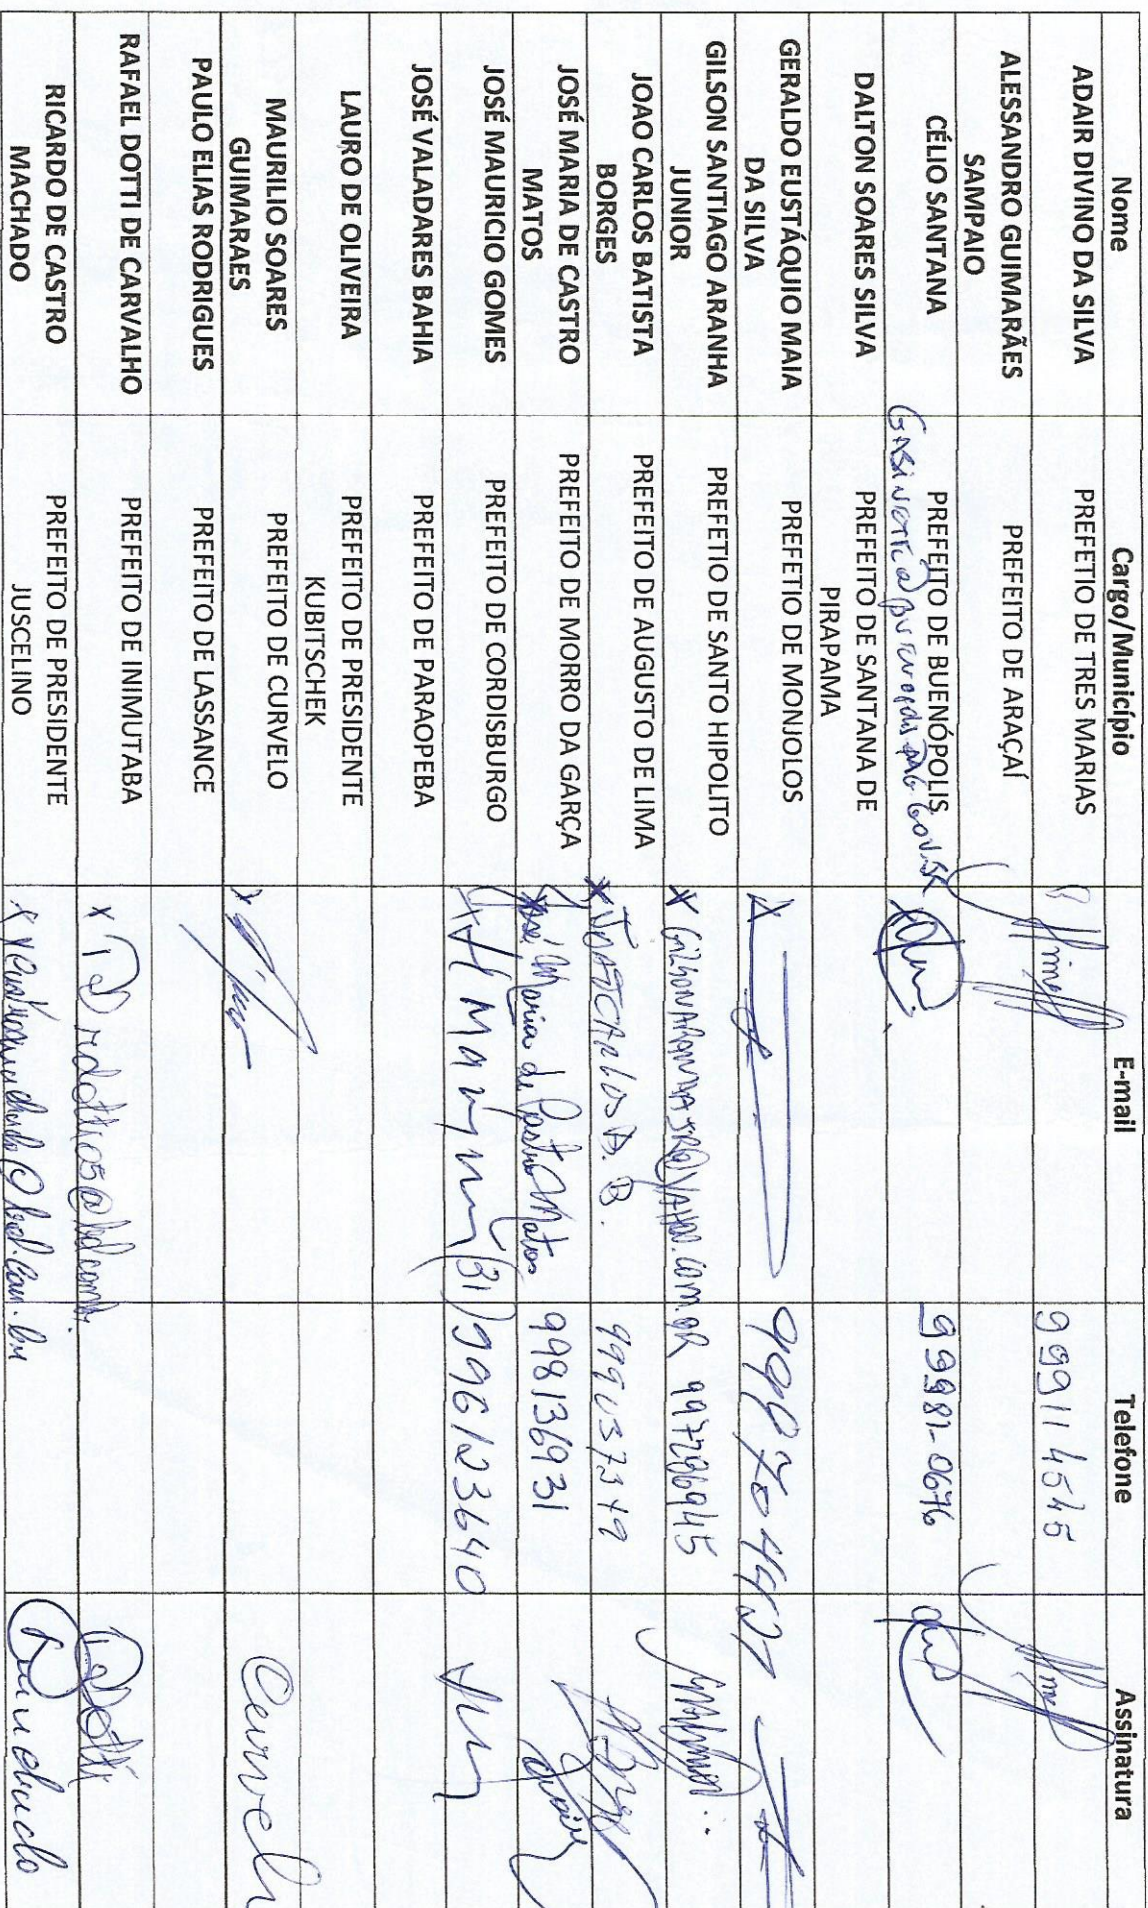 Nome Cargo/Município E-mail Telefone Assinatura
ADAIR DIVINO DA SILVA PREFETIO DE TRES MARIAS 999114545
ALESSANDRO GUIMARÃES PREFEITO DE ARAÇAÍ
SAMPAIO
CÉLIO SANTANA PREFEITO DE BUENÓPOLIS 99981-0676
DALTON SOARES SILVA PREFEITO DE SANTANA DE
PIRAPAMA
GERALDO EUSTÁQUIO MAIA PREFETIO DE MONJOLOS
DA SILVA
GILSON SANTIAGO ARANHA PREFETIO DE SANTO HIPOLITO X GILSONARANHAJR@YAHOO.COM.BR
JUNIOR
JOAO CARLOS BATISTA PREFEITO DE AUGUSTO DE LIMA X JOAO CARLOS B. B.
BORGES
JOSÉ MARIA DE CASTRO PREFEITO DE MORRO DA GARÇA José Maria de Castro Matos 998136931
MATOS
JOSÉ MAURICIO GOMES PREFEITO DE CORDISBURGO X (31) 996123640
JOSÉ VALADARES BAHIA PREFEITO DE PARAOPEBA
LAURO DE OLIVEIRA PREFEITO DE PRESIDENTE
KUBITSCHEK
MAURILIO SOARES PREFEITO DE CURVELO X
GUIMARAES
PAULO ELIAS RODRIGUES PREFEITO DE LASSANCE
RAFAEL DOTTI DE CARVALHO PREFEITO DE INIMUTABA X
RICARDO DE CASTRO PREFEITO DE PRESIDENTE X
MACHADO JUSCELINO